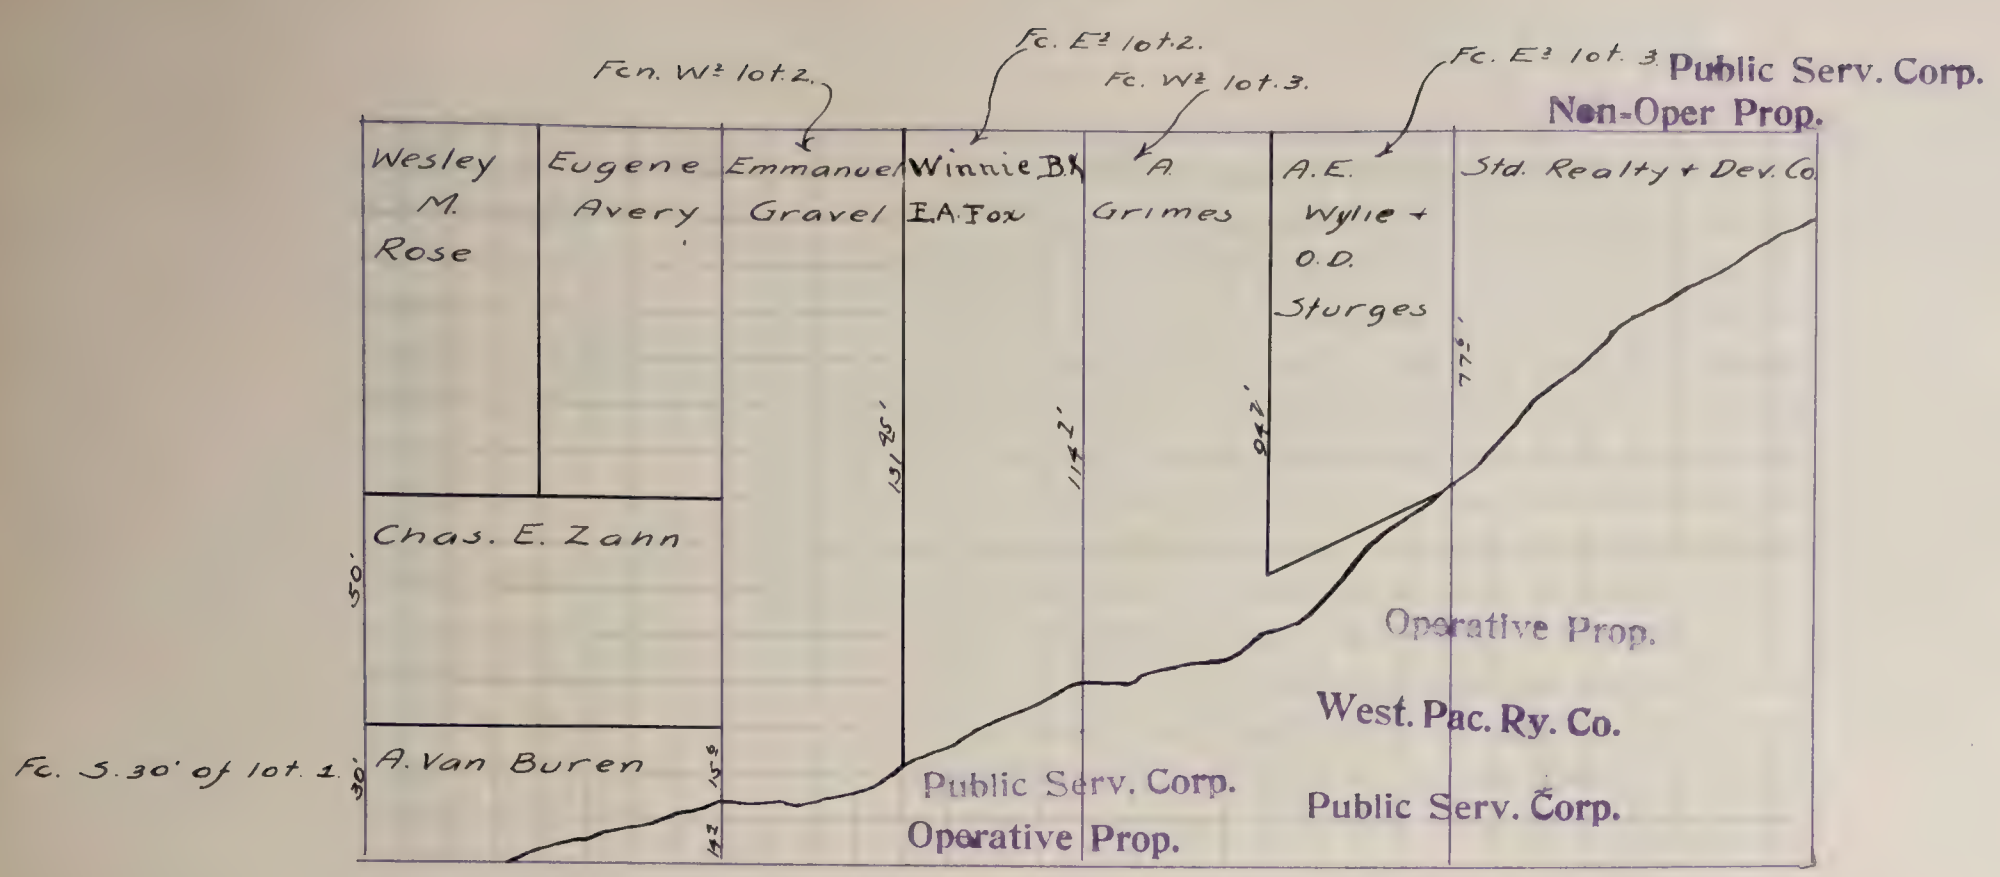 Fcn. W½ lot.2.
Fc. E½ lot.2.
Fc. W½ lot.3.
Fc. E½ lot. 3.
Public Serv. Corp.
Non-Oper Prop.
Wesley
M.
Rose
Eugene
Avery
Emmanuel
Gravel
Winnie B.
E.A. Fox
A.
Grimes
A.E.
Wylie +
O.D.
Sturges
Std. Realty + Dev. Co.
131
114 2'
94 2'
77
Chas. E. Zahn
50'
Fc. S. 30' of lot. 1.
30'
A. Van Buren
15
14
Operative Prop.
West. Pac. Ry. Co.
Public Serv. Corp.
Public Serv. Corp.
Operative Prop.